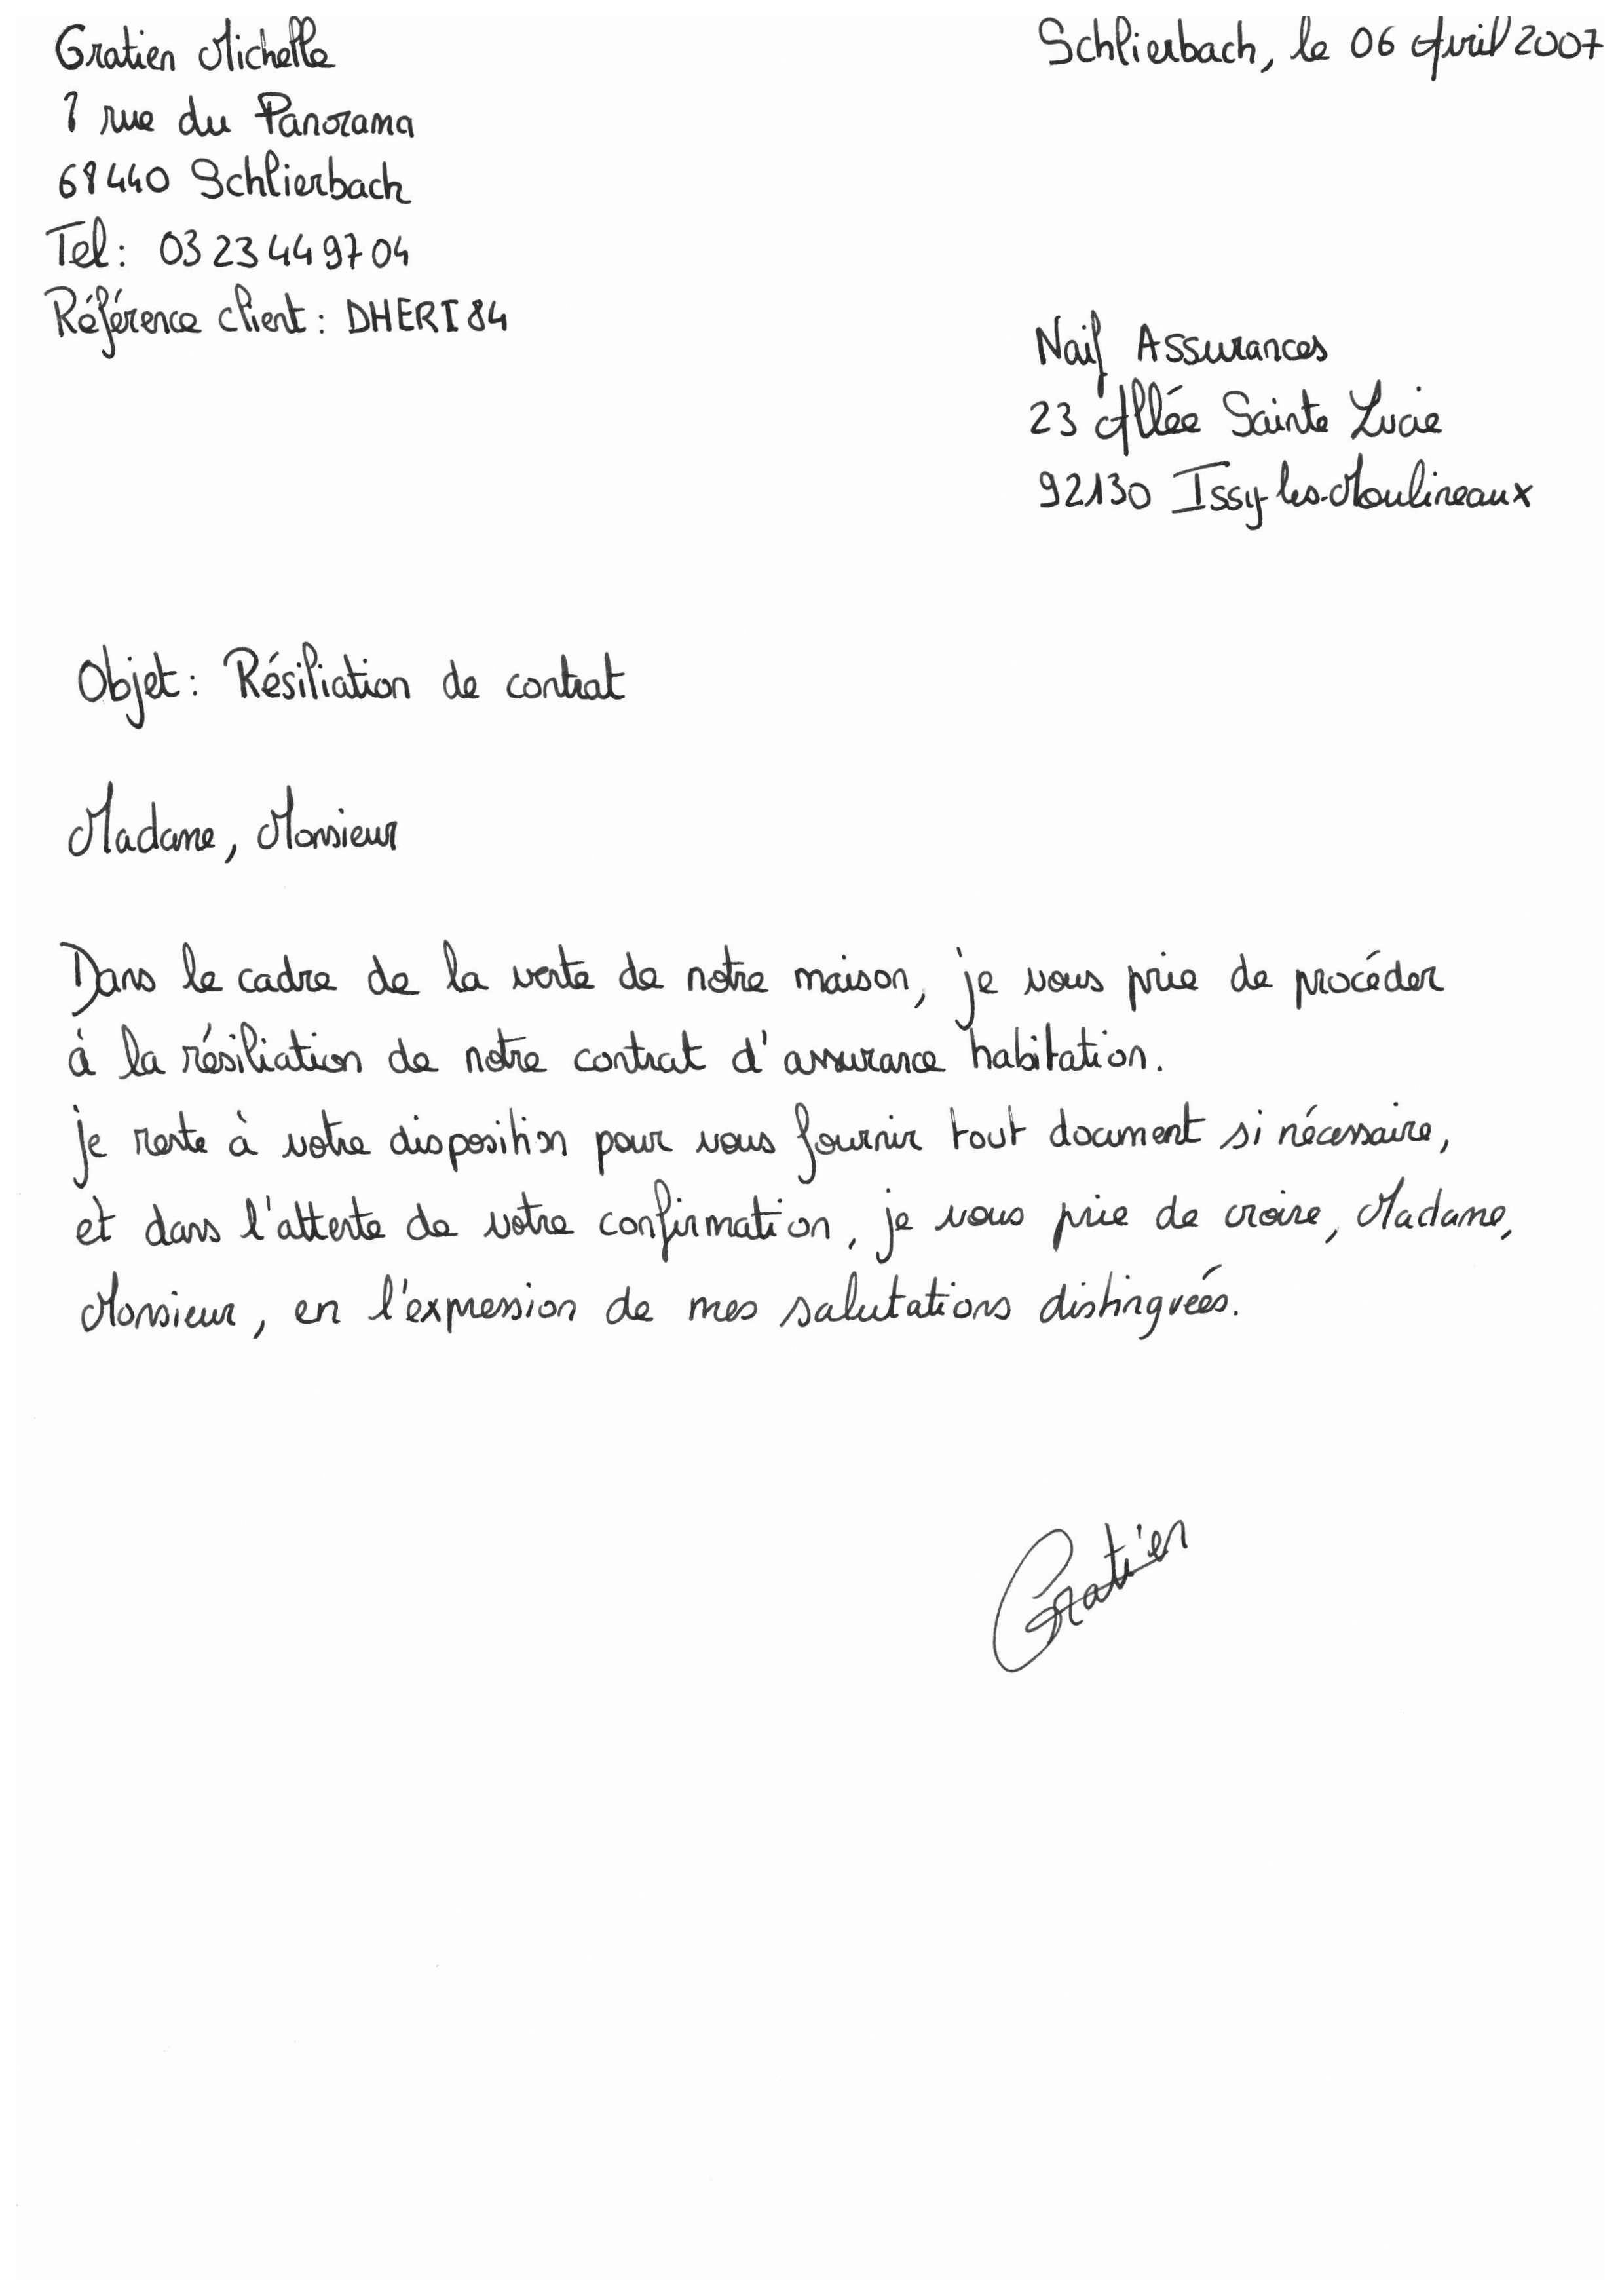 Gratien Michelle
Schlierbach, le 06 Avril 2007
8 rue du Panorama
68440 Schlierbach
Tel : 03 23 44 97 04
Référence client : DHERI84
Naif Assurances
23 Allée Sainte Lucie
92130 Issy-les-Moulineaux
Objet : Résiliation de contrat
Madame, Monsieur
Dans le cadre de la vente de notre maison, je vous prie de procéder
à la résiliation de notre contrat d'assurance habitation.
je reste à votre disposition pour vous fournir tout document si nécessaire,
et dans l'attente de votre confirmation, je vous prie de croire, Madame,
Monsieur, en l'expression de mes salutations distinguées.
Gratien